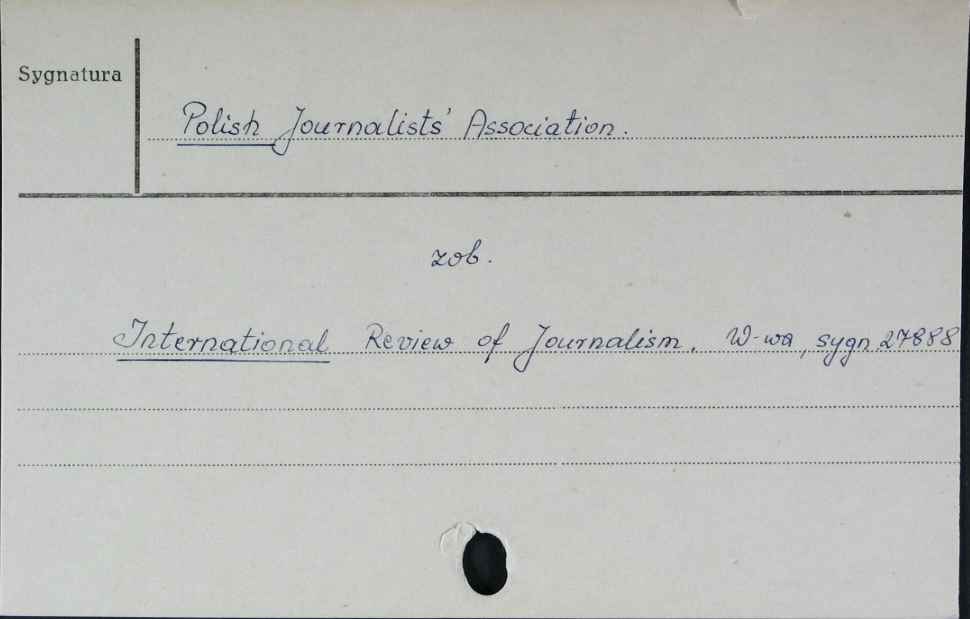 Sygnatura
Polish Journalists' Association.
zob.
International Review of Journalism. W-wa, sygn 27888